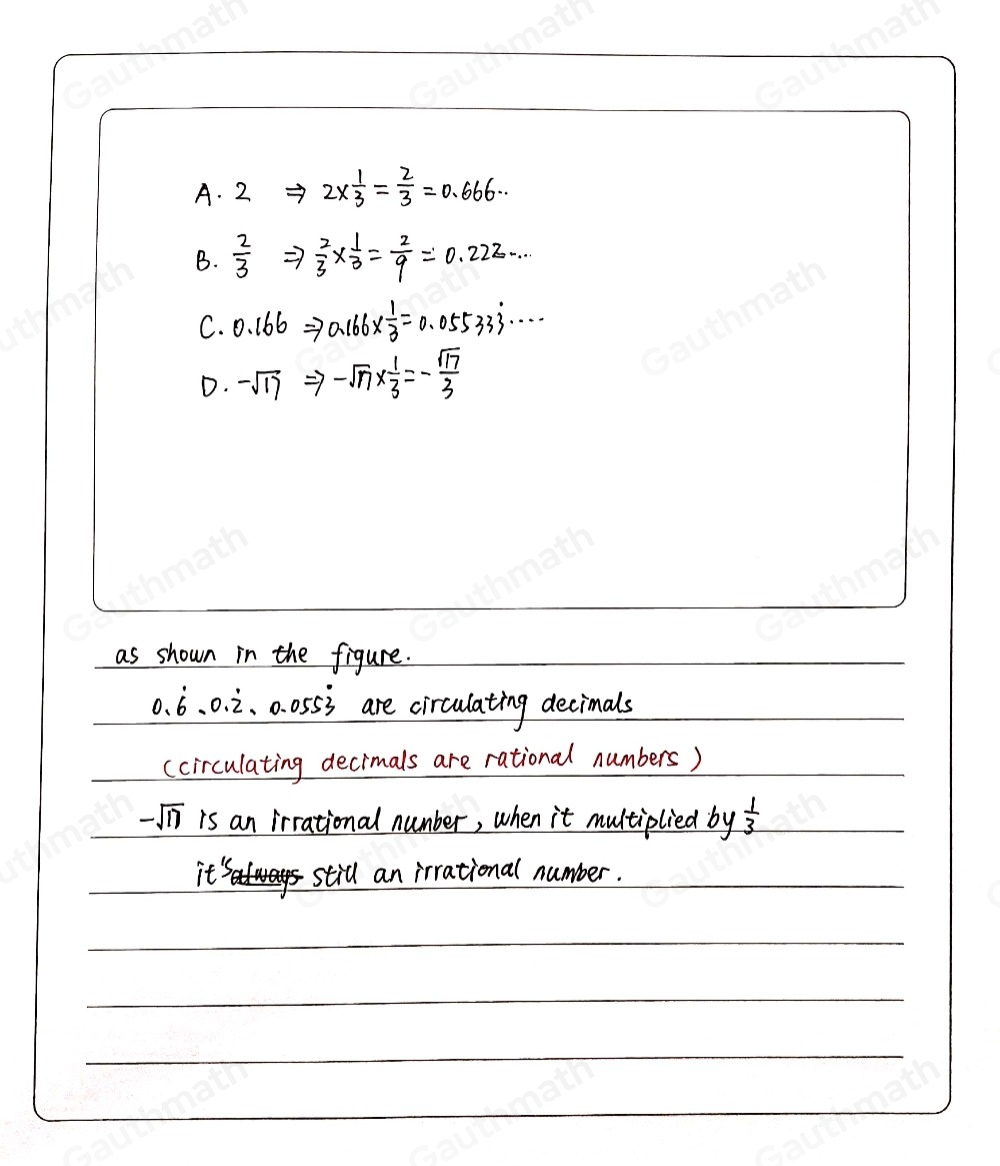 A. 2 ⇒ 2×1/3 = 2/3 = 0.666..
B. 2/3 ⇒ 2/3×1/3 = 2/9 = 0.222....
C. 0.166 ⇒ 0.166×1/3 = 0.055333̇....
D. -√17 ⇒ -√17×1/3 = -√17/3
as shown in the figure.
0.6̇、0.2̇、0.0553̇ are circulating decimals
(circulating decimals are rational numbers)
-√17 is an irrational number, when it multiplied by 1/3
it's always still an irrational number.
Gauthmath